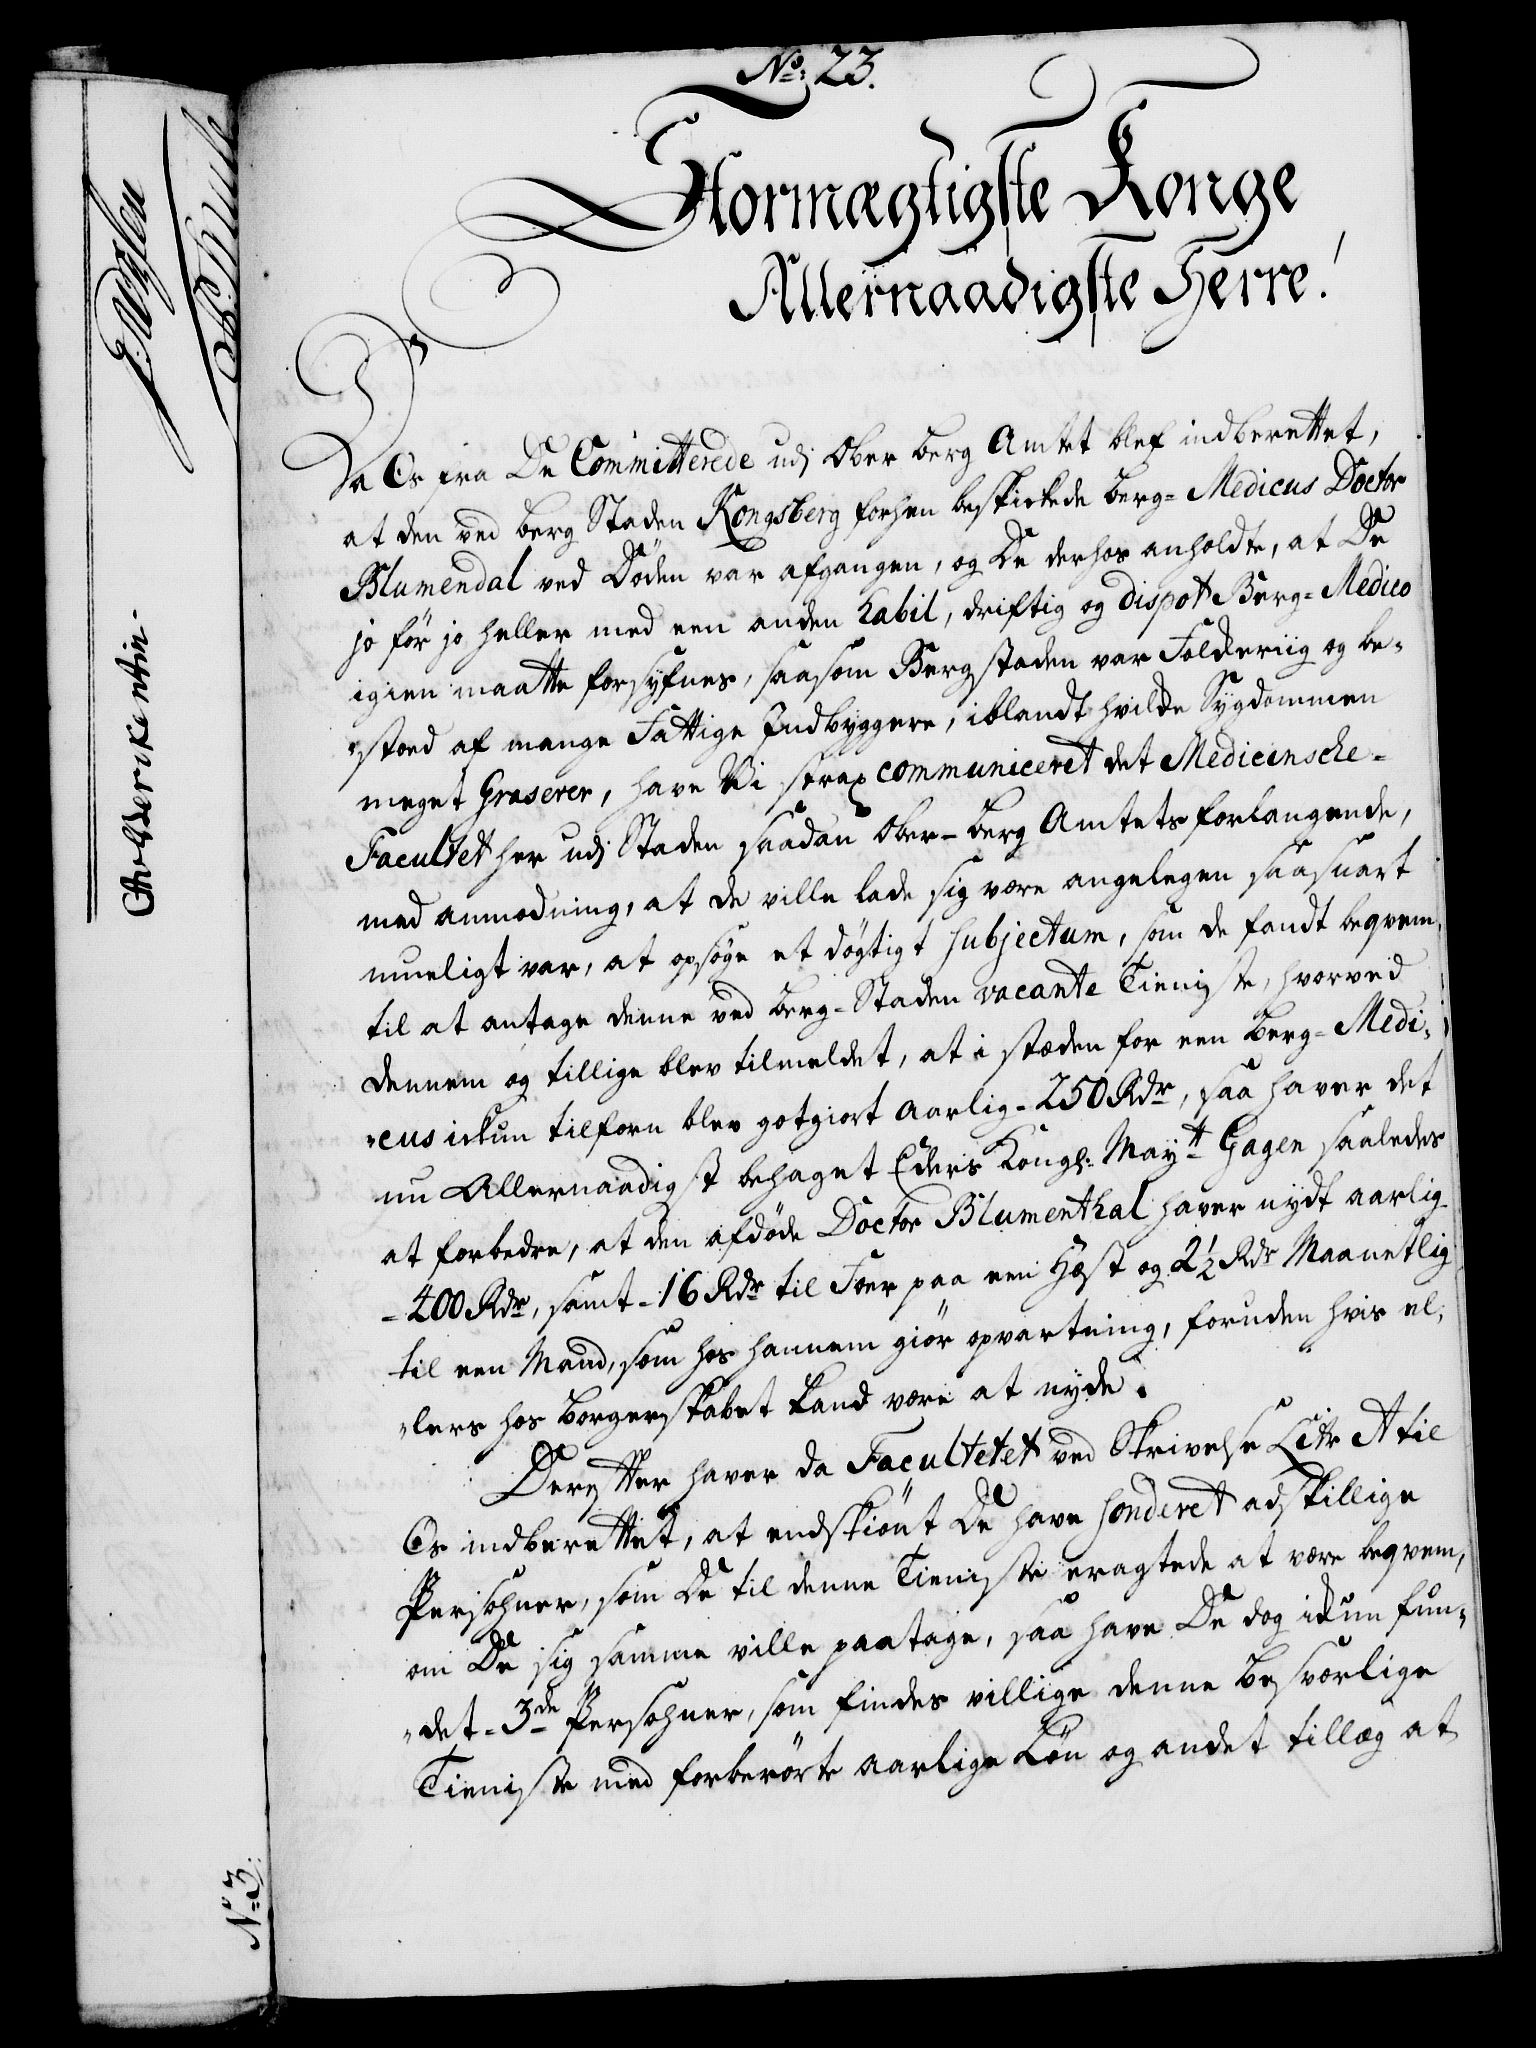 No: 23.
Stormægtigste Konge
Allernaadigste Herre!
Da Os fra De Committerede udj Ober Berg Amtet blef indberettet,
at den ved Berg Staden Kongsberg forhen beskickede Berg-Medicus Doctor
Blumendal ved Döden var afgangen, og De derhos anholdte, at De
jo för jo heller med een anden habil, driftig og dispot Berg-Medico
igien maatte forsyfnes, saasom Bergstaden var Folckeriig og be-
stoed af mange Fattige Indbyggere, iblandt hvilcke Sygdommen
meget Graserer, have Vi strax communiceret det Medicinsche-
Facultet her udj Staden saadan Ober-Berg Amtets forlangende,
med anmodning, at de ville lade sig være angelegen saasnart
mueligt var, at opsöge et dögtigt Subjectum, som de fandt beqvem,
til at antage denne ved Berg-Staden vacante Tieniste, hvorved
dennem og tillige blev tilmeldet, at i stæden for een Berg-Medi-
cus ickun tilforn blev gotgiort aarlig-250 Rdr, saa haver det
nu Allernaadigst behaget Eders Kongl: Maytt Gagen saaledes
at forbedre, at den afdöde Doctor Blumenthal haver nydt aarlig
-400 Rdr, samt-16 Rdr til Foer paa een Hæst og 2½ Rdr Maanetlig
til een Mand, som hos hannem giör opvartning, foruden hvis el-
lers hos Borgerskabet kand være at nyde.
Derefter haver da Facultetet ved Skrivelse Litr A til
Os indberettet, at endskiönt De have Sonderet adskillige
Persohner, som De til denne Tieniste eragtede at være beqvem,
om De sig samme ville paatage, saa have De dog ickun fun-
det-3de Persohner, som findes villige denne besværlige
Tieniste med forberörte aarlige Lön og andet tillæg at
No 3.